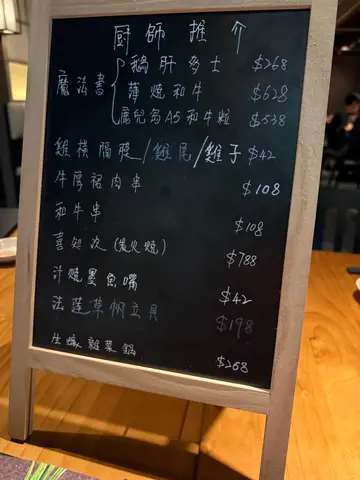 廚師推介
魔法書 鵝肝多士 $268
薄燒和牛 $628
鹿兒島A5和牛粒 $538
雞橫膈膜/雞尾/雞子 $42
牛厚裙肉串 $108
和牛串 $108
喜知次(炭火燒) $788
汁燒墨魚嘴 $42
法蓮草帆立貝 $198
雜菜鍋 $268